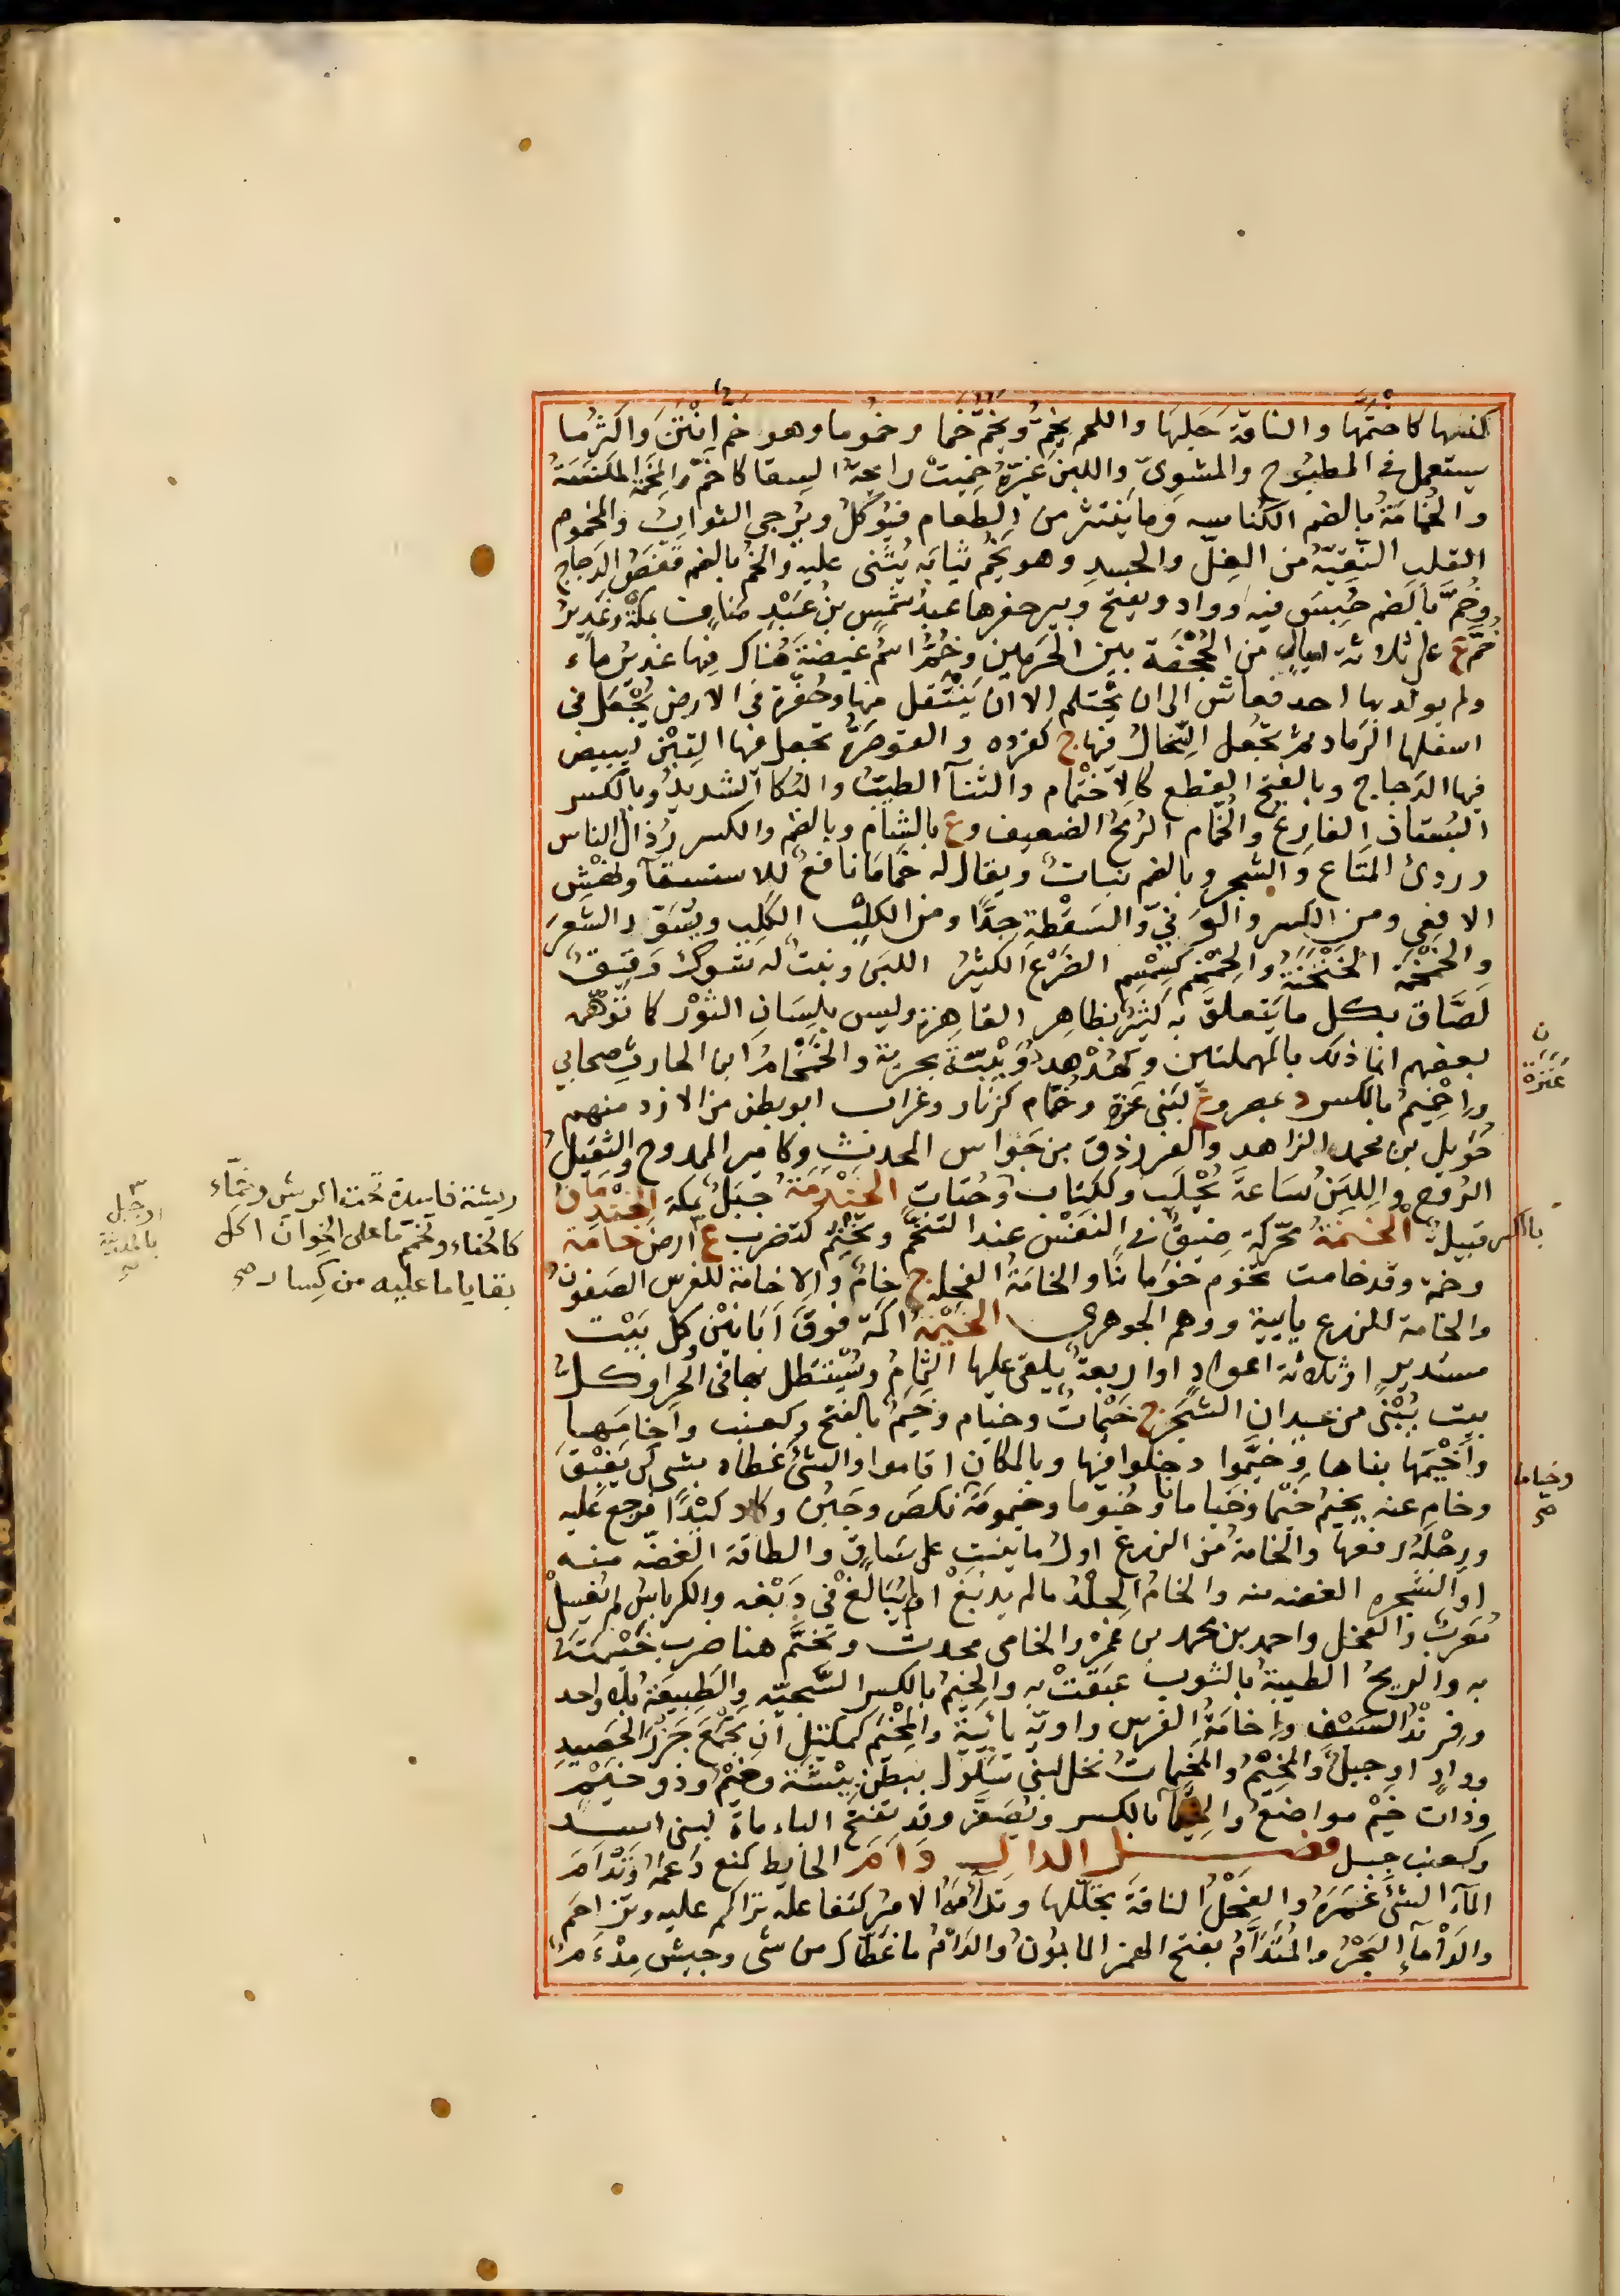 كنسها كاختمّها والناقةَ حَلَبَها واللحم يَخِمّ ويَخُمّ خَمّا وخموما وهو خم اَنْتَنَ واكثرما
يستعمل في المطبوخ والمشوىّ واللبن غيّره خبث رايحة السقا كاخمّ والمِخَمّة المكنسة
والخُمامة بالضم الكناسه وما ينتثر من الطعام فيوكل ويُرجى الثوابُ والمخموم
القلب النقيّه من الغِلّ والحسد وهو يَخُمّ ثيابه يُثنى عليه والخُمّ بالضم قفص الدجاج
وخُمّ بالضم حُبِسَ فيه وواد ويفتح وبير حفرها عبد شمس بن عبد مناف بمكة وغدير
خُمّ ع على ثلاثة اميال من الجُحْفَة بين الحرمين وخُمّ اسم غيضة هناك فيها غدير ماء
ولم يولد بها احد فعاش الى ان يحتلم الا ان ينتقل منها وحُفرة في الارض يُجْعل في
اسفلها الرماد ثم تجعل السخال فيها ج كقرده والقوصرةُ تجعل فيها التبن لتبيض
فيها الدجاج وبالفتح القطع كالاختمام والثنآ الطيّبُ والبكآ الشديدُ وبالكسر
البستان الفارغ والخُمام الرمحُ الضعيف وع بالشام وبالضم والكسر رُذال الناس
وردئُ المتاع والشجر وبالضم نبات ويقال له خماما نافع للاستسقآ ونهش
الافعى ومن الكسر والوَنيّ والسَقْطة جدًّا ومن الكلب الكَلِب ويُسَوّد الشعرَ
والخَمْخَمة الخَنْخَنة والخِمْخِم كسِمْسِم الضَرْع الكثيرُ اللبن ونبت له شوك دقيق
لصّاق بكل ما يتعلق به كثير بظاهر القاهرة وليس بلسان الثور كا توهّمه
بعضهم انما ذلك بالمهملتين وكهُدْهُد دُوَيْبّة بحرية والخمخامُ ابن الحارث صحابي
واِخْمِيم بالكسر د بمصر وع لبنى عَنَزة وخُمّام كزنار وغراب ابو بطن من الازد منهم
حُويل بن محمد الزاهد والفرزذق بن جَوّاس المحدث وكامير الممدوح والثقيل
الروح واللبن ساعة يُحْلَب وككتاب وحُتات الخَنْدَمَة جَبَل بمكة الخِنْدمانُ
قبيلة الخَنَمة محركة ضيق في النفس عند التَنخّم وتَخْنِم كتضرب ع ارض خامَة
وخمة وقد خامت تخوم خوَمانًا والخامَة الفجلة ج خام والاخامة للفرس الصُفون
والخامة للزرع يايية ووهم الجوهرى الخَيْمَة اكمة فوق اَبانَيْن وكل بَيْت
مستدير او ثلاثة اعواد او اربعة يلقى عليها الثمام ويُستظل بها في الحر او كل
بيت يُبْنَى من عيدان الشجر ج خَيْمات وخيام وخَيم بالفتح وكعنب واخامَها
واَخْيَمَها بناها وخَيَّموا دخلوا فيها وبالمكان اقاموا والشئ غطاه بشى كى يَعْبَقَ
وخام عنه يَخيم خَيْما وخَيامانًا وخُيوما وخَيمومة نكص وجَبُن وكاد كيدًا فرجع عليه
ورِجْلَهُ رفعها والخامة من الزرع اول ما ينبت على ساق والطاقة الغضّه منه
او الشجره الغضه منه والخام الجلدُ مالم يدبغ او لم يُبالَغ في دَبْغه والكرباس لم يُغسل
مُعَرب والفجل واحمد بن محمد بن عمره والخامى محدث وتخيّم هنا ضرب خَيْمَتَه
به والريحُ الطيبة بالثوب عَبَقَت به والخيم بالكسر السَّجيّه والطَبيعة بلا واحد
وفِرِنْدُ السيف واخامة الفرس واويّة يائيّة والمِخْيَم كمكتل ان تَجمع جُرَز الحصيد
ووادٍ او جبلٌ والمَخِيْم والمَخَيّمات نخل لبنى سَلُول ببطن بِيْشة وخَيْم وذو خيم
وذات خَيْم مواضع والخِيَما بالكسر ويُصَغّر وقد تفتح الياء ماة لبنى اسد
وكعنب جبل فصل الدال دَاَمَ الحايط كمنع دَعَمَهُ وتَدَاَمَ
المآء الشئَ غَمَرَهُ والفحلُ الناقةَ تجللها وتدأمَهُ الامر كتفاعله تراكم عليه وتزاحم
والدَأمآء البَحْر والمُتَدَأَّم بفتح الهمز المابُونُ والدَأْم ما غَطاك من شى وجيش مِدْءَم
ن
عَنَزَة
بالكسر
وخياما
صح
ريشة فاسدة تحت الريش وخمّاء
كالحناء وتخمّم ما على الخِوان اكل
بقايا ما عليه من كِسار صح
او جبل
بالمدينة
صح